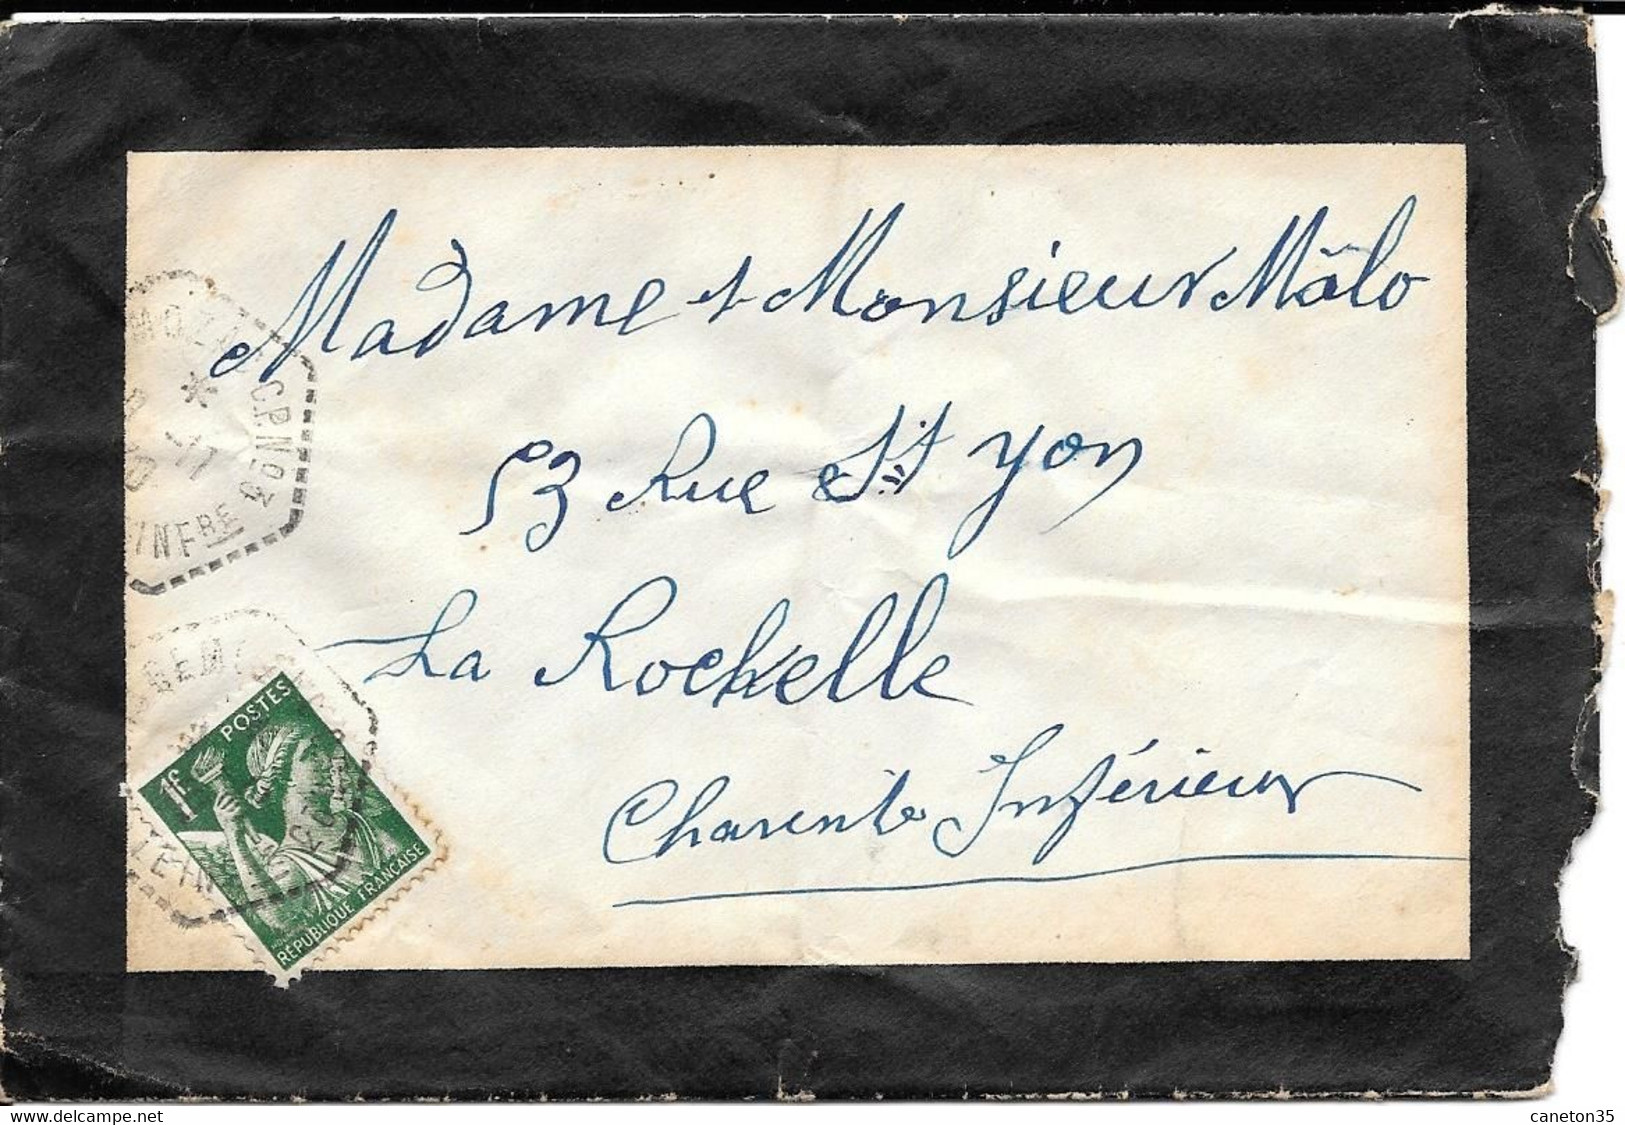 Madame et Monsieur Mâlo
53 Rue St Yon
La Rochelle
Charente Inférieure
C.P. No 3
INFRE
POSTES
1F
RÉPUBLIQUE FRANÇAISE
www.delcampe.net
caneton35